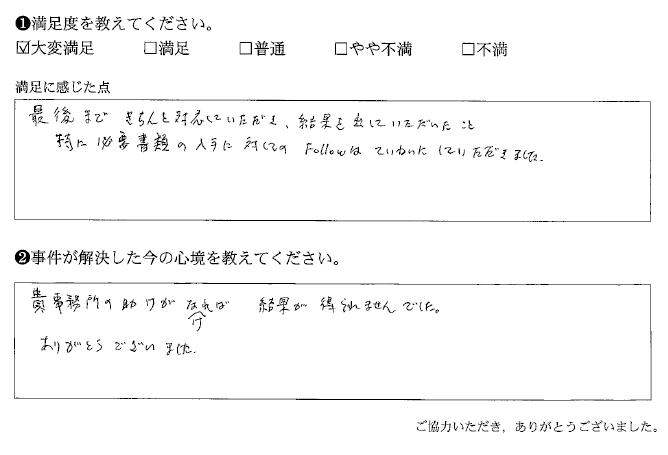 ❶満足度を教えてください。
☑大変満足 □満足 □普通 □やや不満 □不満
満足に感じた点
最後まで きちんと対応していただき、結果を出していただいたこと
特に必要書類の入手に対してのFollowはていねいにしていただきました。
❷事件が解決した今の心境を教えてください。
貴事務所の助けがなければ 結果が得られませんでした。
ありがとうございました。
ご協力いただき，ありがとうございました。